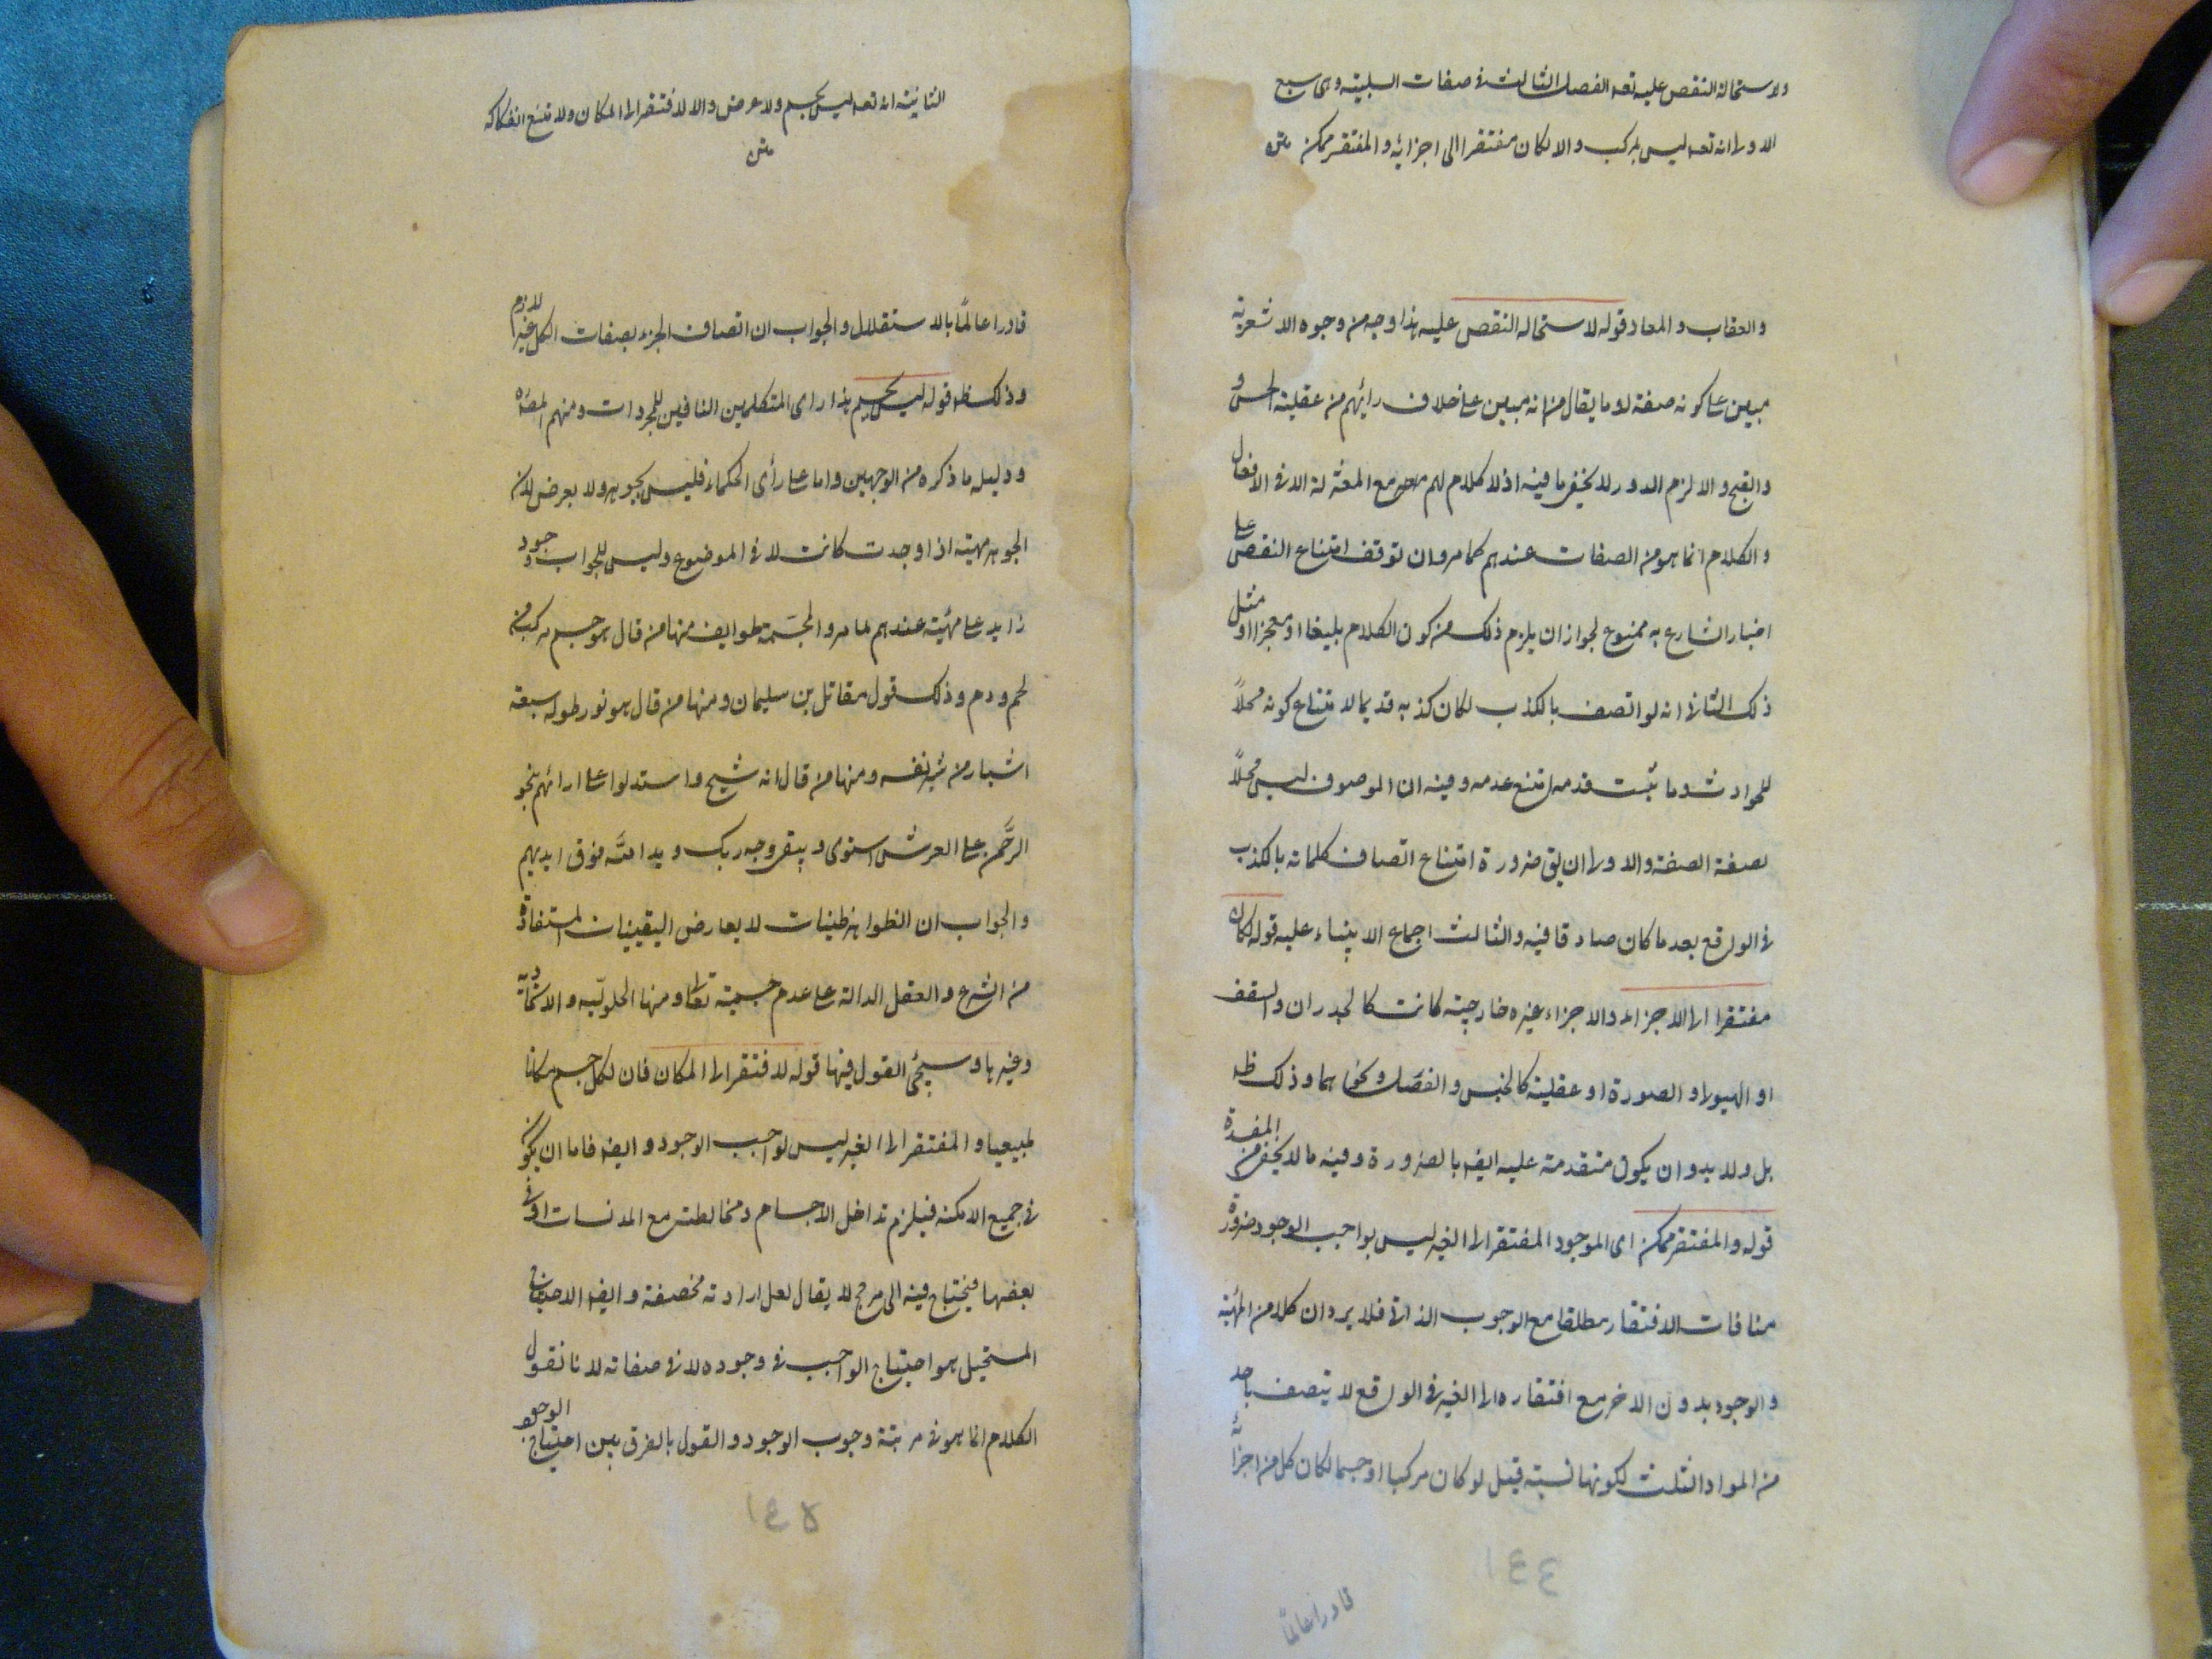 ولاستحالة النقص عليه تعه الفصل الثالث فى صفات السلبية وهى سبع
الاولى انه تعه ليس بمركب والا لكان مفتقرا الى اجزائه والمفتقر ممكن متن
والعقاب والمعاد قوله لاستحاله النقص عليه هذا وجه من وجوه الاشعرية
مبين على كونه صفة لا ما يقال من انه مبين على خلاف رائهم من عقلية الحسن و
والقبح والا لزم الدور لا يخفى ما فيه اذ لا كلام لهم مع المعتزلة الا فى الافعال
والكلام انما هو من الصفات عندهم كما مر وان توقف امتناع النقص على
اخبار الشارع به ممنوع لجواز ان يلزم ذلك من كون الكلام بليغا او معجزا او مثل
ذلك الثانى انه لو اتصف بالكذب لكان كذبه قديما لامتناع كونه محلاً
للحوادث وما ثبت قدمه امتنع عدمه وفيه ان الموصوف ليس محلاً
لصفة الصفة والاولى ان يق ضرورة امتناع اتصاف كلماته بالكذب
فى الواقع بعد ما كان صادقا فيه والثالث اجماع الانبياء عليه قوله لكان
مفتقرا الى الاجزاء والاجزاء غيره خارجية كانت كالجدران والسقف
او الهيولى والصورة او عقلية كالجنس والفصل ونحوهما وذلك ظه
بل ولا بد وان يكون متقدمة عليه ايضه بالضرورة وفيه ما لا يخفى من المفسدة
قوله والمفتقر ممكن اى الموجود المفتقر الى الغير ليس بواجب الوجود ضرورة
منافات الافتقار مطلقا مع الوجوب الذاتى فلا يرد ان كلا من المهية
والوجود بدون الاخر مع افتقاره الى الغير فى الواقع لا يتصف باحد
من المواد الثلث لكونها نسبته قيل لو كان مركبا او جسما لكان كل من اجزائه
١٤٤
قادرا عالمًا
الثانية انه تعه ليس بجسم ولا عرض والا لافتقر الى المكان ولامتنع انفكاكه
متن
قادرا عالمًا بالاستقلال والجواب ان اتصاف الجزء بصفات الكل غير لازم
وذلك ظه قوله ليس بجسم هذا راى المتكلمين النافين للمجردات ومنهم المصه
ودليله ما ذكره من الوجهين واما على رأى الحكماء فليس بجوهر ولا بعرض لان
الجوهر مهية اذا وجدت كانت لا فى الموضوع وليس للجواب وجود
زايد على مهيته عندهم لما مر والمجسّمة طوايف منها من قال هو جسم مركب من
لحم ودم وذلك قول مقاتل بن سليمان ومنها من قال هو نور طوله سبعة
اشبار من شبر نفسه ومنها من قال انه شيخ واستدلوا على ارائهم بنحو
الرَّحمن على العرش استوى ويبقى وجه ربك ويد اللّه فوق ايديهم
والجواب ان الظواهر ظنيات لا يعارض اليقينيات المستفادة
من الشرع والعقل الدالة على عدم جسميته تعالى ومنها الحلوليّه والاتحادية
وغيرها وسيجئ القول فيها قوله لافتقر الى المكان فان لكل جسم مكانا
طبيعيا والمفتقر الى الغير ليس لواجب الوجود وايضه فاما ان يكون
فى جميع الامكنه فيلزم تداخل الاجسام ومخالطته مع المدنسات او فى
بعضها فيحتاج فيه الى مرجح لا يقال لعل ارادته مخصصة وايضه الاحتياج
المستحيل هو احتياج الواجب فى وجوده لا فى صفاته لانا نقول
الكلام انما هو فى مرتبة وجوب الوجود والقول بالفرق بين احتياج الوجود
١٤٥